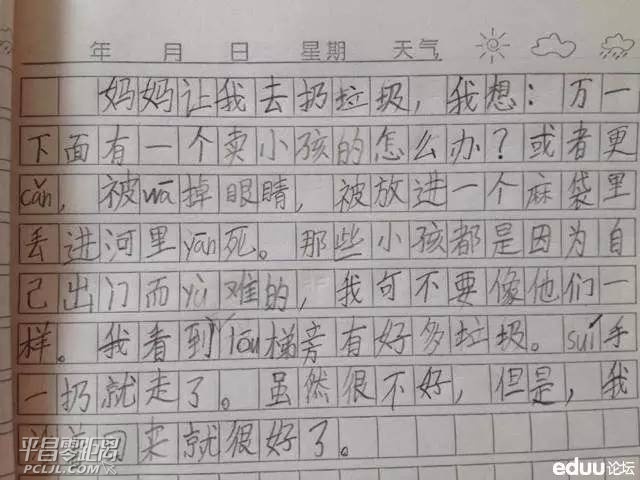 年 月 日 星期 天气
妈妈让我去扔垃圾,我想:万一
下面有一个卖小孩的怎么办?或者更
cǎn,被wā掉眼睛,被放进一个麻袋里
丢进河里yān死。那些小孩都是因为自
己出门而yù难的,我可不要像他们一
样。我看到lóu梯旁有好多垃圾。suí手
一扔就走了。虽然很不好,但是,我
回来就很好了。
平昌零距离
PCLJL.COM
eduu论坛